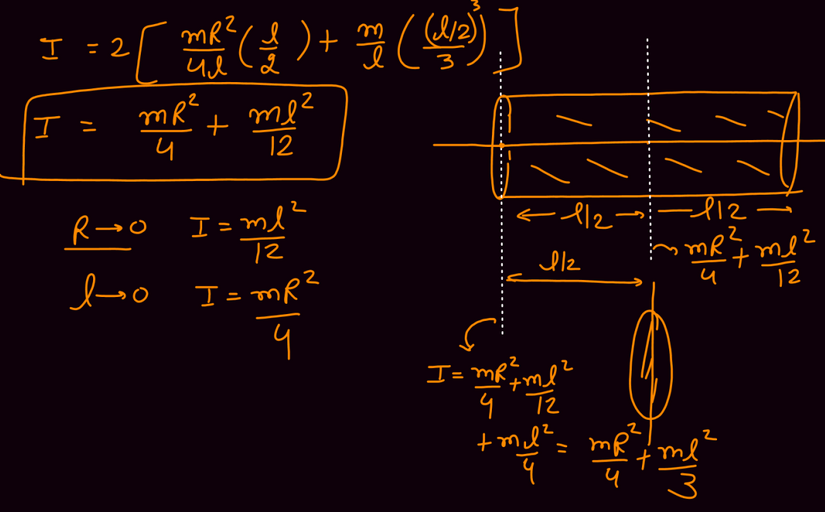 I = 2 [ mR²/4l (l/2) + m/l ((l/2)³/3) ]
I = mR²/4 + ml²/12
R → 0 I = ml²/12
l → 0 I = mR²/4
l/2 l/2
mR²/4 + ml²/12
l/2
I = mR²/4 + ml²/12
+ ml²/4 = mR²/4 + ml²/3